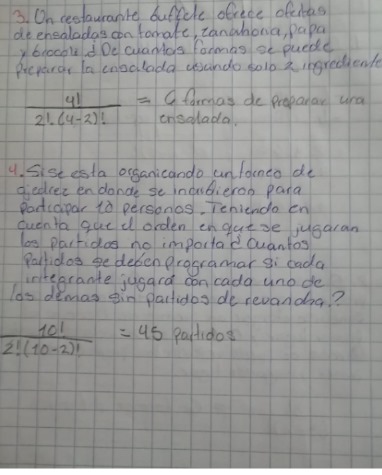 3. Un restaurante buffete ofrece ofertas
de ensaladas con tomate, zanahoria, papa
y brocoli ¿ De cuantas formas se puede
preparar la ensalada usando solo 2 ingrediente
4! / 2!.(4-2)! = 6 formas de preparar una
ensalada.
4. Si se esta organicando un torneo de
ajedrez en donde se inscribieron para
participar 10 personas. Teniendo en
cuenta que el orden en que se jugaran
los partidos no importa ¿ Cuantos
Partidos se deben programar si cada
integrante jugará con cada uno de
los demas sin partidos de revancha?
10! / 2!(10-2)! = 45 partidos